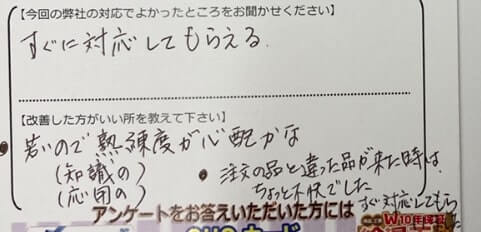 【今回の弊社の対応でよかったところをお聞かせください】
すぐに対応してもらえる.
【改善した方がいい所を教えて下さい】
若いので熟練度が心配かな
(知識の)
(応用の)
• 注文の品と違った品が来た時は、
ちょっと不快でした
すぐ対応してもら
アンケートをお答えいただいた方には
W10年保証